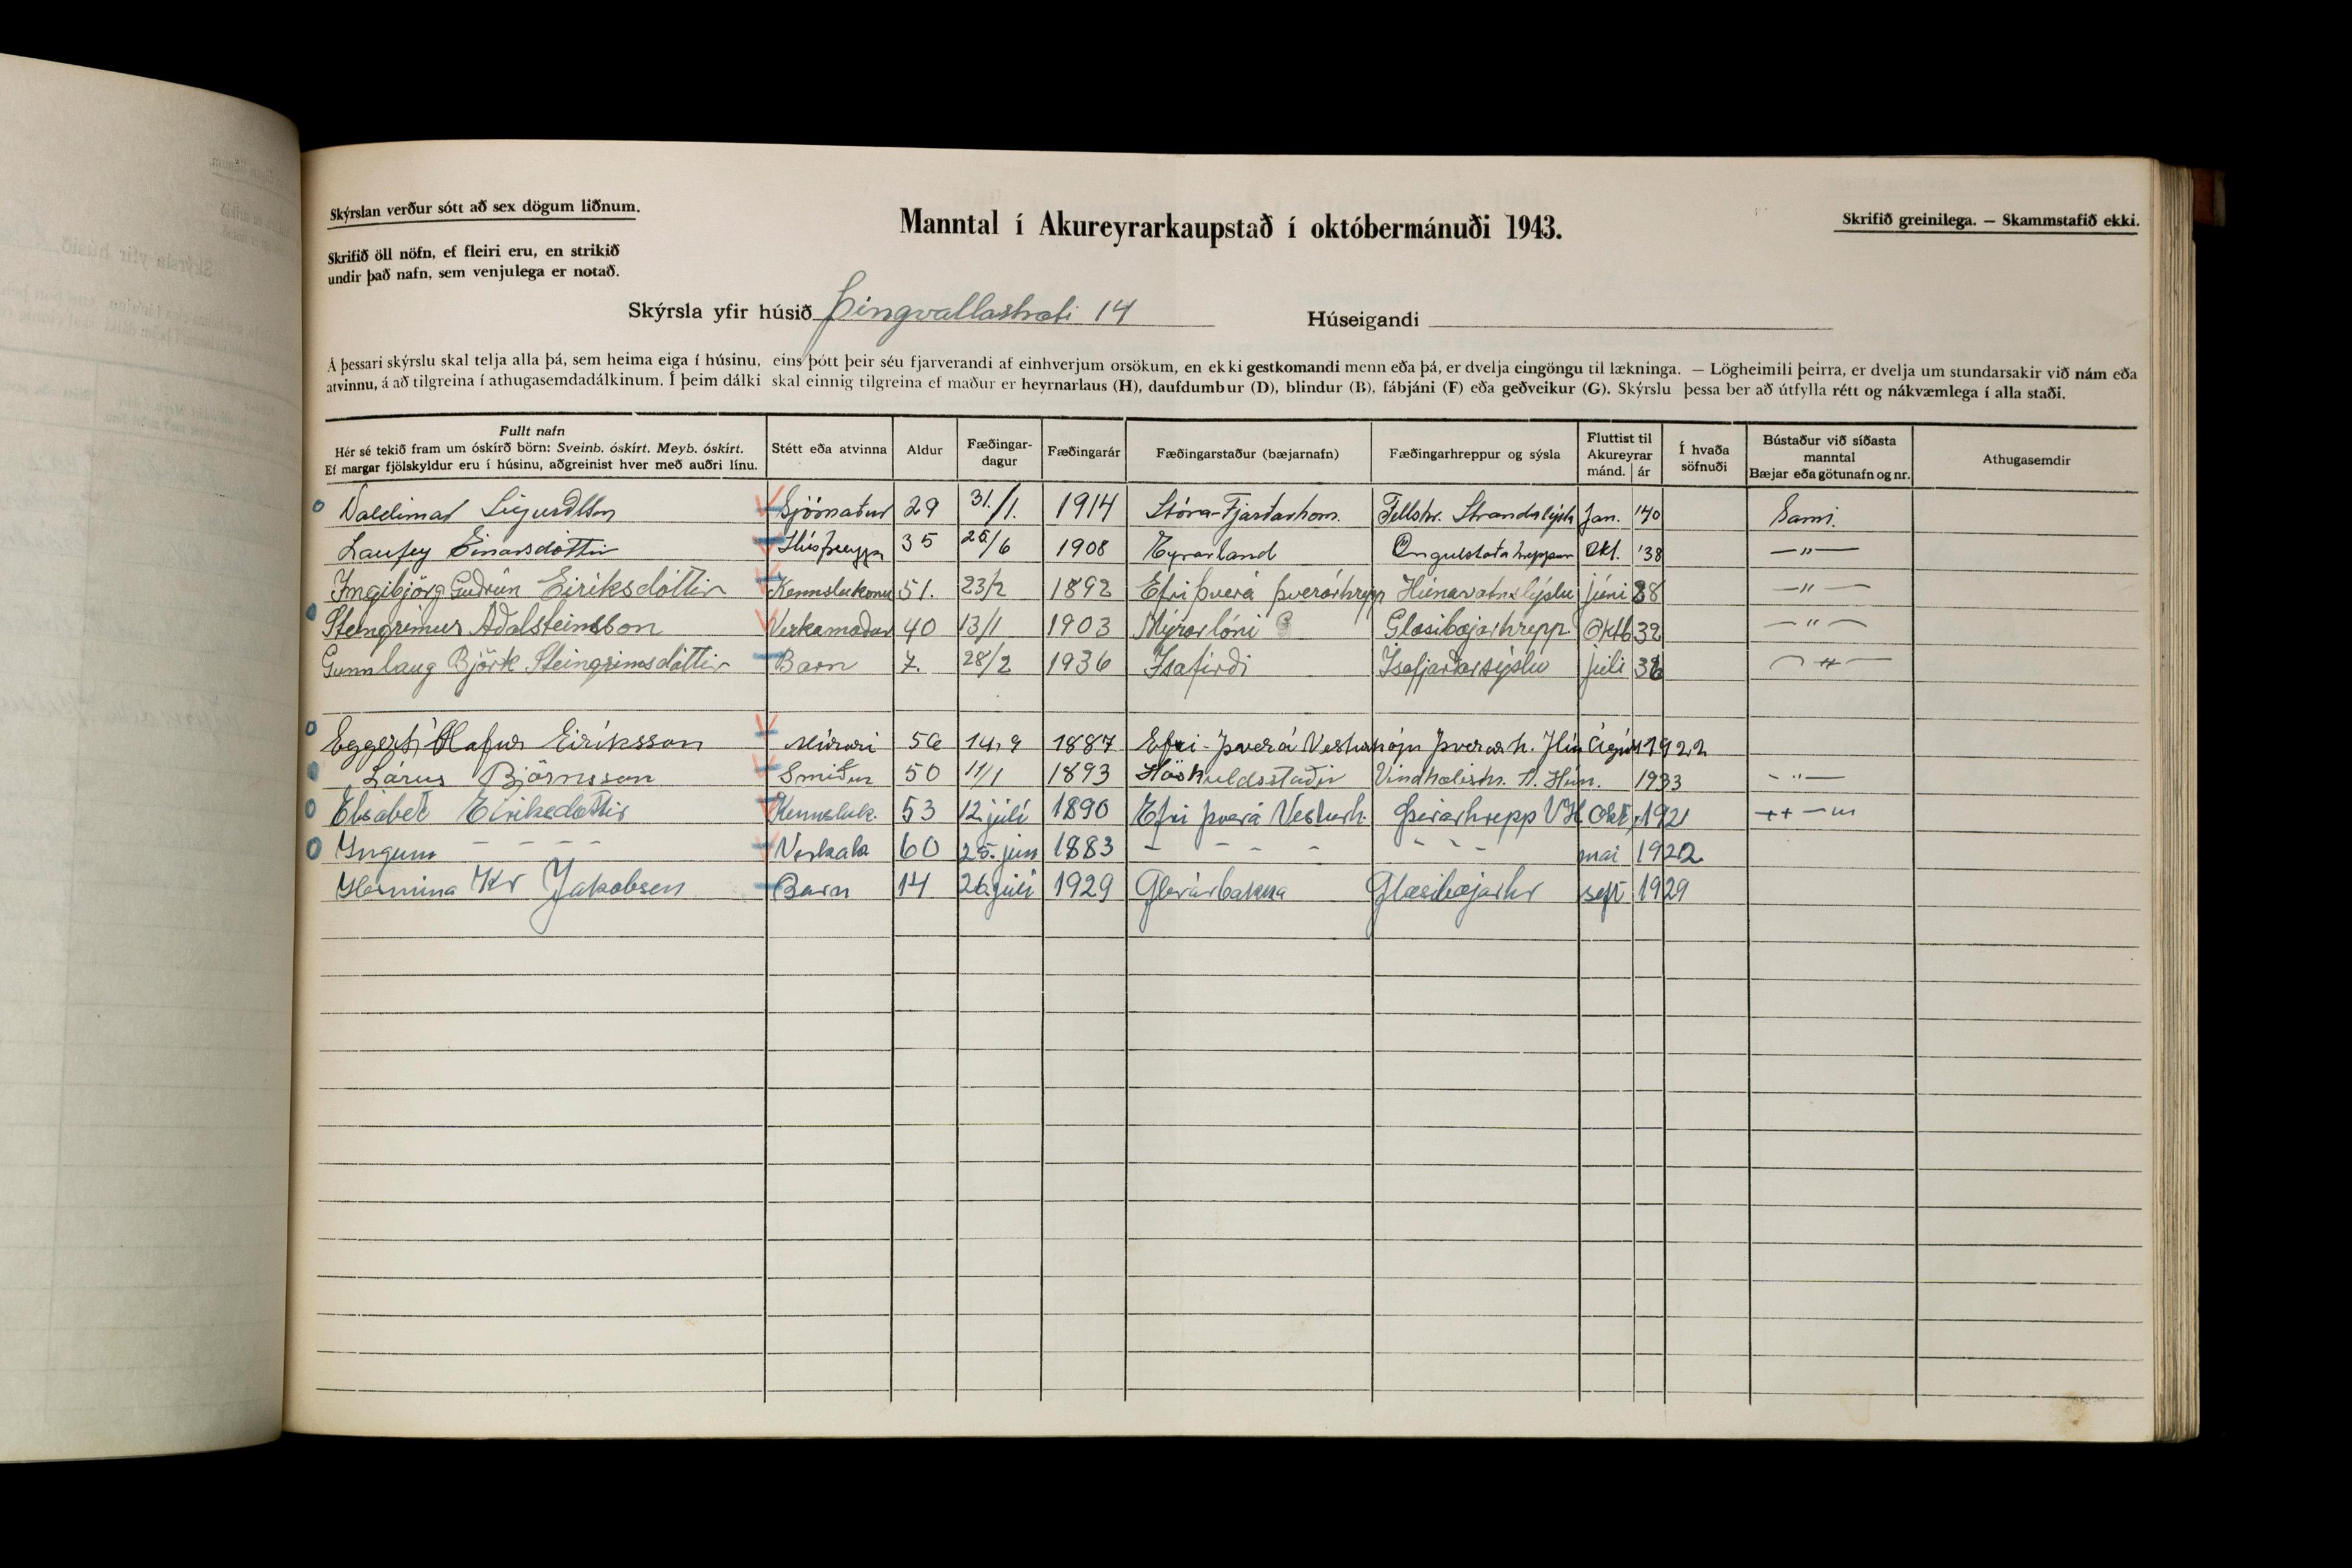 Skýrslan verður sótt að sex dögum liðnum.
Skrifið öll nöfn, ef fleiri eru, en strikið
undir það nafn, sem venjulega er notað.
Manntal í Akureyrarkaupstað í októbermánuði 1943.
Skrifið greinilega. — Skammstafið ekki.
Skýrsla yfir húsið Þingvallastræti 14 Húseigandi
Á þessari skýrslu skal telja alla þá, sem heima eiga í húsinu, eins þótt þeir séu fjarverandi af einhverjum orsökum, en ekki gestkomandi menn eða þá, er dvelja eingöngu til lækninga. — Lögheimili þeirra, er dvelja um stundarsakir við nám eða
atvinnu, á að tilgreina í athugasemdadálkinum. Í þeim dálki skal einnig tilgreina ef maður er heyrnarlaus (H), daufdumbur (D), blindur (B), fábjáni (F) eða geðveikur (G). Skýrslu þessa ber að útfylla rétt og nákvæmlega í alla staði.
Fullt nafn
Hér sé tekið fram um óskírð börn: Sveinb. óskírt. Meyb. óskírt.
Ef margar fjölskyldur eru í húsinu, aðgreinist hver með auðri línu.
Stétt eða atvinna
Aldur
Fæðingar-
dagur
Fæðingarár
Fæðingarstaður (bæjarnafn)
Fæðingarhreppur og sýsla
Fluttist til
Akureyrar
mánd. ár
Í hvaða
söfnuði
Bústaður við síðasta
manntal
Bæjar eða götunafn og nr.
Athugasemdir
Valdimar Sigurðsson Sjómaður 29 31./1. 1914 Stóra-Fjarðarhorn. Fellshr. Strandasýslu Jan. '40 Sami.
Laufey Einarsdóttir Húsfreyja 35 25/6 1908 Eyrarland Öngulstaðahreppur Okt. '38 — " —
Ingibjörg Guðrún Eiríksdóttir Kennslukona 51. 23/2 1892 Efri Þverá Þverárhrepp Húnavatnssýslu júní 38 — " —
Steingrímur Aðalsteinsson Verkamaður 40 13/1 1903 Mýrarlóni Glæsibæjarhrepp Oktb 32 — " —
Gunnlaug Björk Steingrímsdóttir Barn 7. 28/2 1936 Ísafirði Ísafjarðarsýslu júlí 36 — " —
Eggert Ólafur Eiríksson Múrari 56 14,9 1887 Efri-Þverá Vesturhópi Þverárh. Hún Ágúst 1922
Lárus Björnsson Smiður 50 11/1 1893 Höskuldsstaðir Vindhælishr. A. Hún. 1933 - " —
Elísabet Eiríksdóttir Kennsluk. 53 12 júlí 1890 Efri Þverá Vesturh. Þverárhrepp VH Okt, 1921
Ingunn - - - - Verkak 60 25. jún 1883 - - - - - - - mai 1922
Hermína Kr Jakobsen Barn 14 26 júlí 1929 Glerárbakka Glæsibæjarhr sept 1929